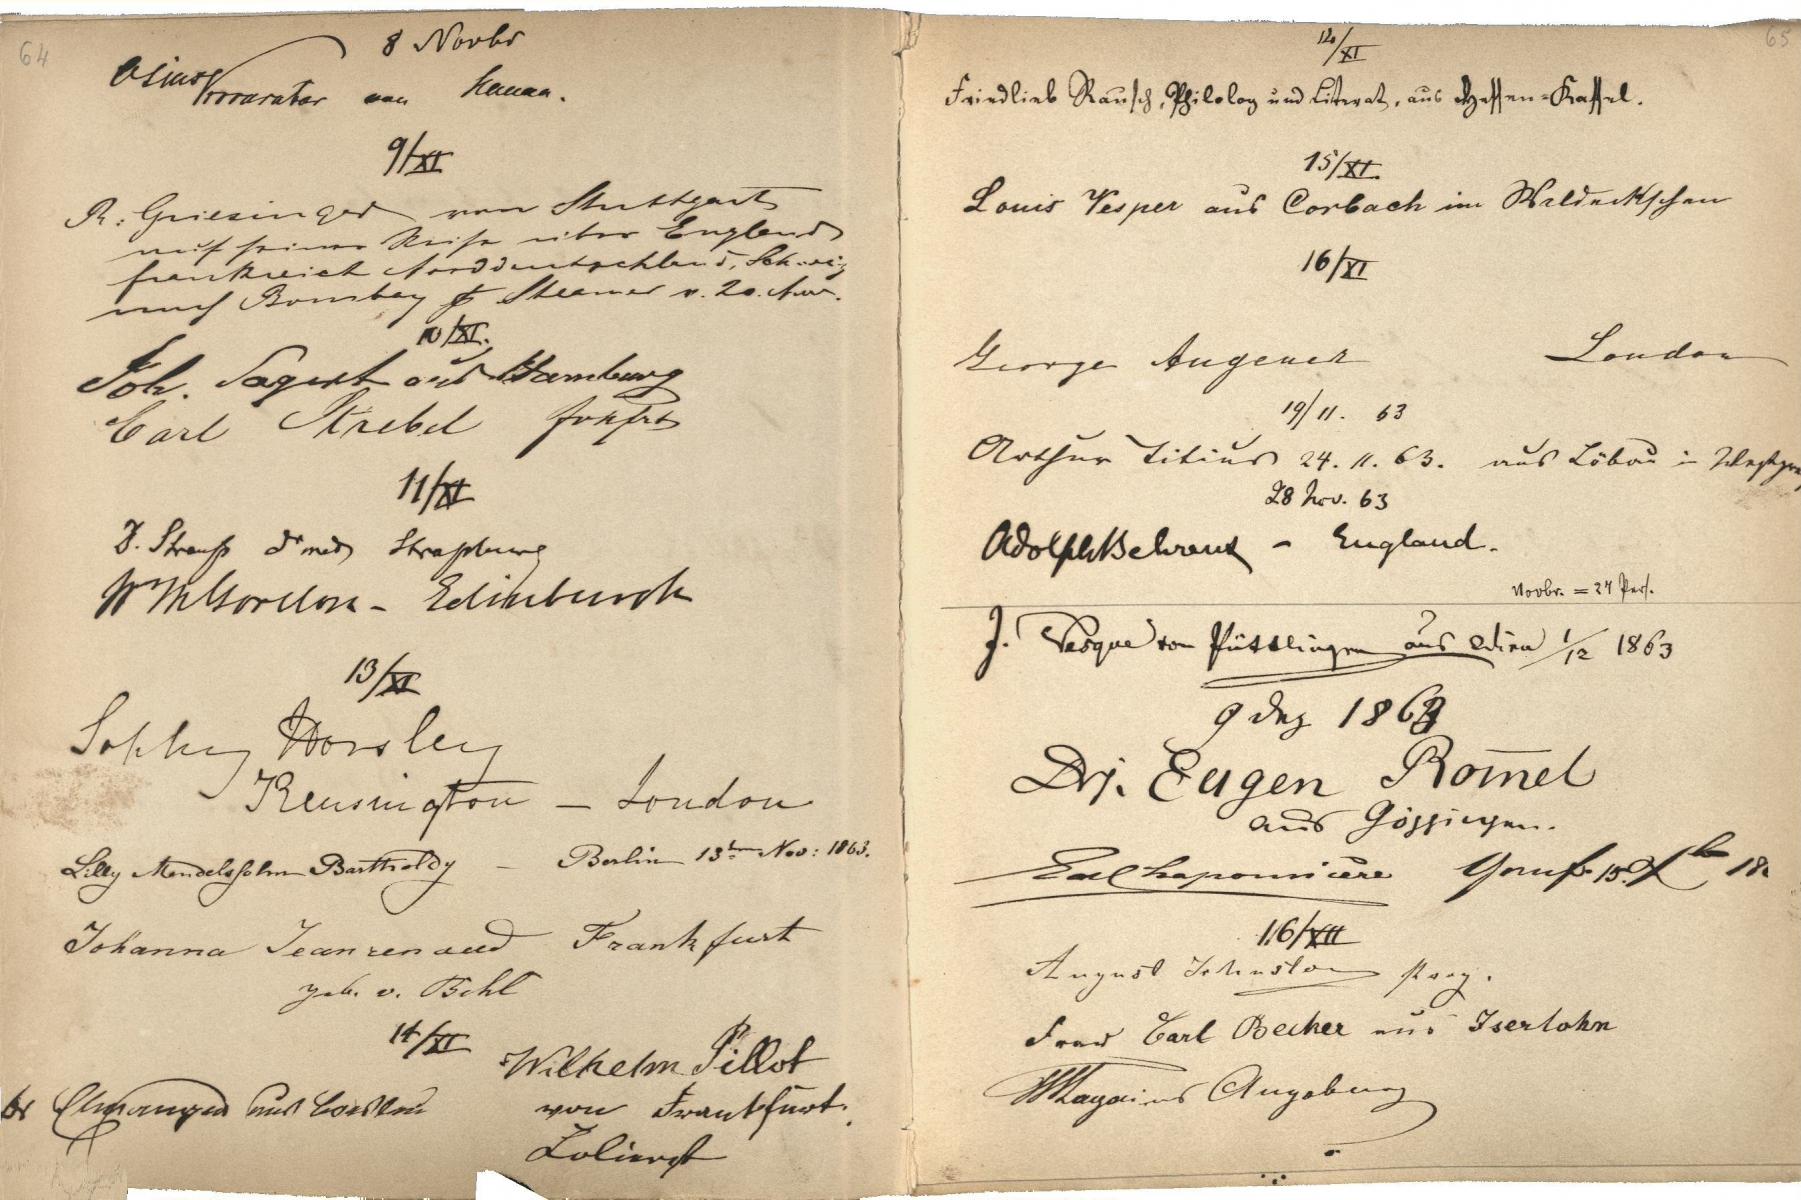 64
8 Novbr
von Hanau.
9/XI
R: Griesinger von Stuttgart
auf seiner Reise über England
Frankreich Norddeutschland, Schweiz
nach Bombay p Steamer v. 20. Nov.
10/XI.
Joh. Sagert aus Hamburg
Carl Strebel
11/XI
D. Strauß Dr med Straßburg
Gordon - Edinburgh
13/XI
Sophy Horsley
Kensington – London
Lilly Mendelssohn Bartholdy – Berlin 13ten Nov: 1863.
Johanna Jeanrenaud Frankfurt
geb. v.
14/XI
Wilhelm Pillot
von Frankfurt.
aus
65
12/XI
Friedlieb Rausch, Philolog und Literat, aus Hessen-Kassel.
15/XI
Louis Vesper aus Corbach im Waldeckschen
16/XI
George Augener London
19/11. 63
Arthur Titius 24. 11. 63. aus Löbau in
28 Nov. 63
Adolph Behrens - England.
Novbr. = 24 Pers.
J. Vesque von Püttlingen aus Wien 1/12 1863
9 Dez 1863
Dr. Eugen Rom̅el
aus Göppingen.
Chaponnière
16/XII
August Johnston Prag.
Frau Carl Becker aus Iserlohn
Augsburg